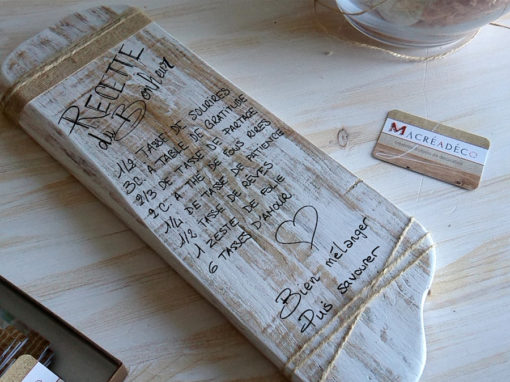 RECETTE
du Bonheur
1/2 TASSE DE SOURIRES
3C. A TABLE DE GRATITUDE
2/3 DE TASSE DE PARTAGE
2 C. A THÉ DE FOUS RIRES
1/4 DE TASSE DE PATIENCE
1/2 TASSE DE RÊVES
1 ZESTE DE FOLIE
6 TASSES D'AMOUR
Bien mélanger
Puis savourer
MACRÉADÉCO